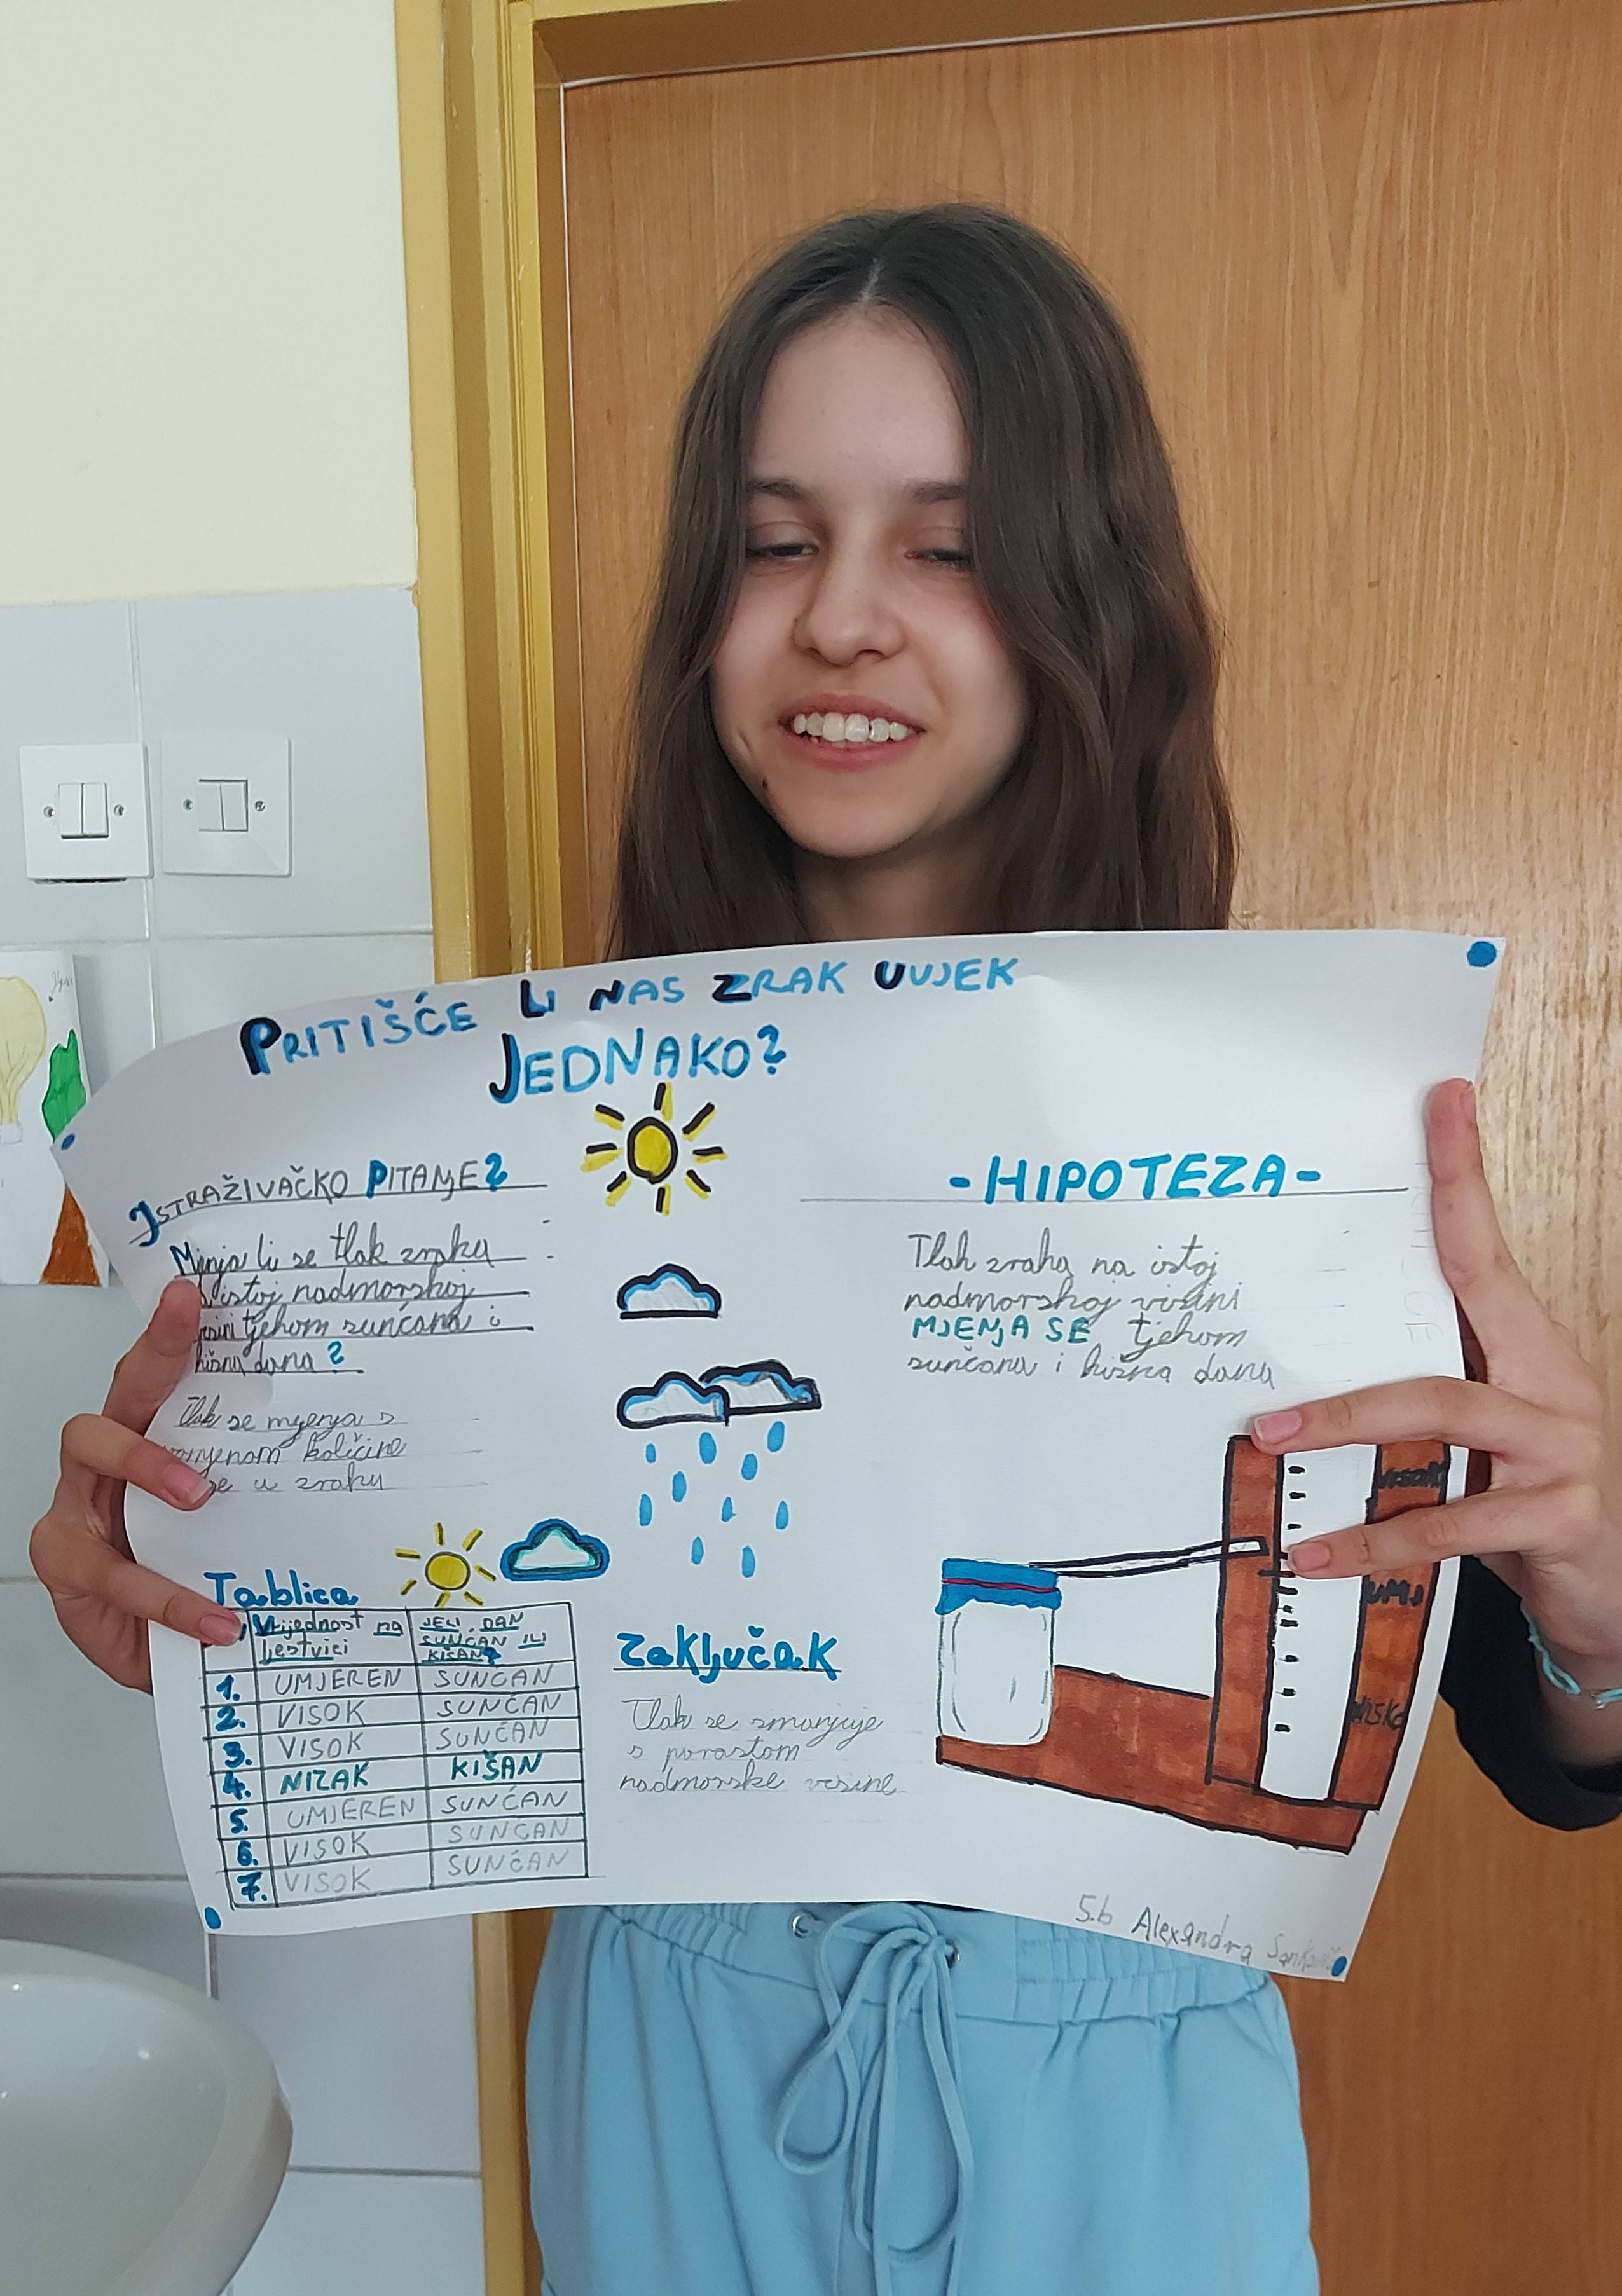 PRITIŠĆE LI NAS ZRAK UVJEK
JEDNAKO?
ISTRAŽIVAČKO PITANJE?
Mjenja li se tlak zraka
istoj nadmorskoj
tjekom sunčana i
kišna dana?
Tlak se mjenja s
količine
u zraku
-HIPOTEZA-
Tlak zraka na istoj
nadmorskoj visini
MJENJA SE tjekom
sunčana i kišna dana
Tablica
Vrijednost na
ljestvici
JELI DAN
SUNČAN ILI
KIŠAN?
1. UMJEREN SUNČAN
2. VISOK SUNČAN
3. VISOK SUNČAN
4. NIZAK KIŠAN
5. UMJEREN SUNČAN
6. VISOK SUNČAN
7. VISOK SUNČAN
Zaključak
Tlak se smanjuje
s porastom
nadmorske visine
UMJ
5.b Alexandra